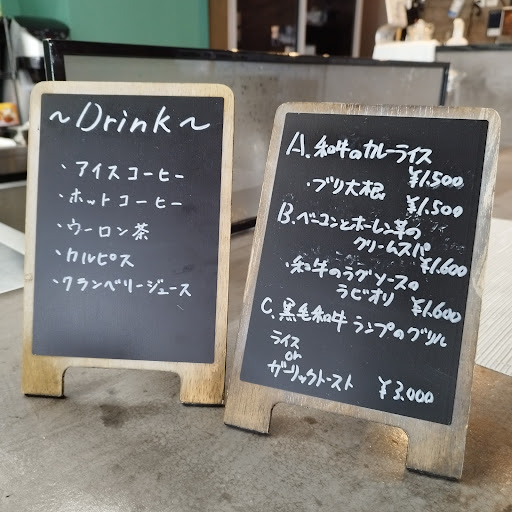 ～Drink～
・アイスコーヒー
・ホットコーヒー
・ウーロン茶
・カルピス
・クランベリージュース
A. 和牛のカレーライス
¥1.500
・ブリ大根
¥1.500
B. ベーコンとホーレン草の
クリームスパ
¥1.600
和牛のラグソースの
ラビオリ ¥1.600
C. 黒毛和牛 ランプのグリル
ライス
or
ガーリックトースト ¥3.000